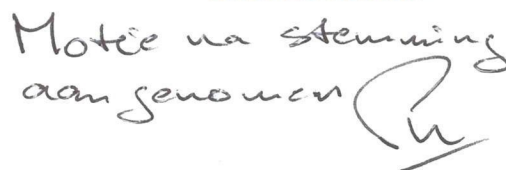 Motie na stemming
aangenomen